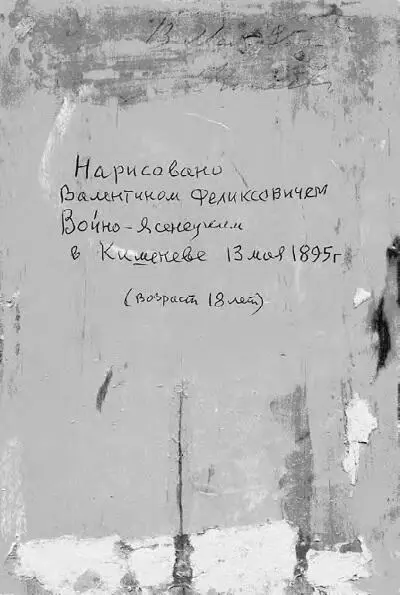 13 Мая 95
Нарисовано
Валентином Феликсовичем
Войно-Ясенецким
в Кишеневе 13 мая 1895г
(возраст 18 лет)